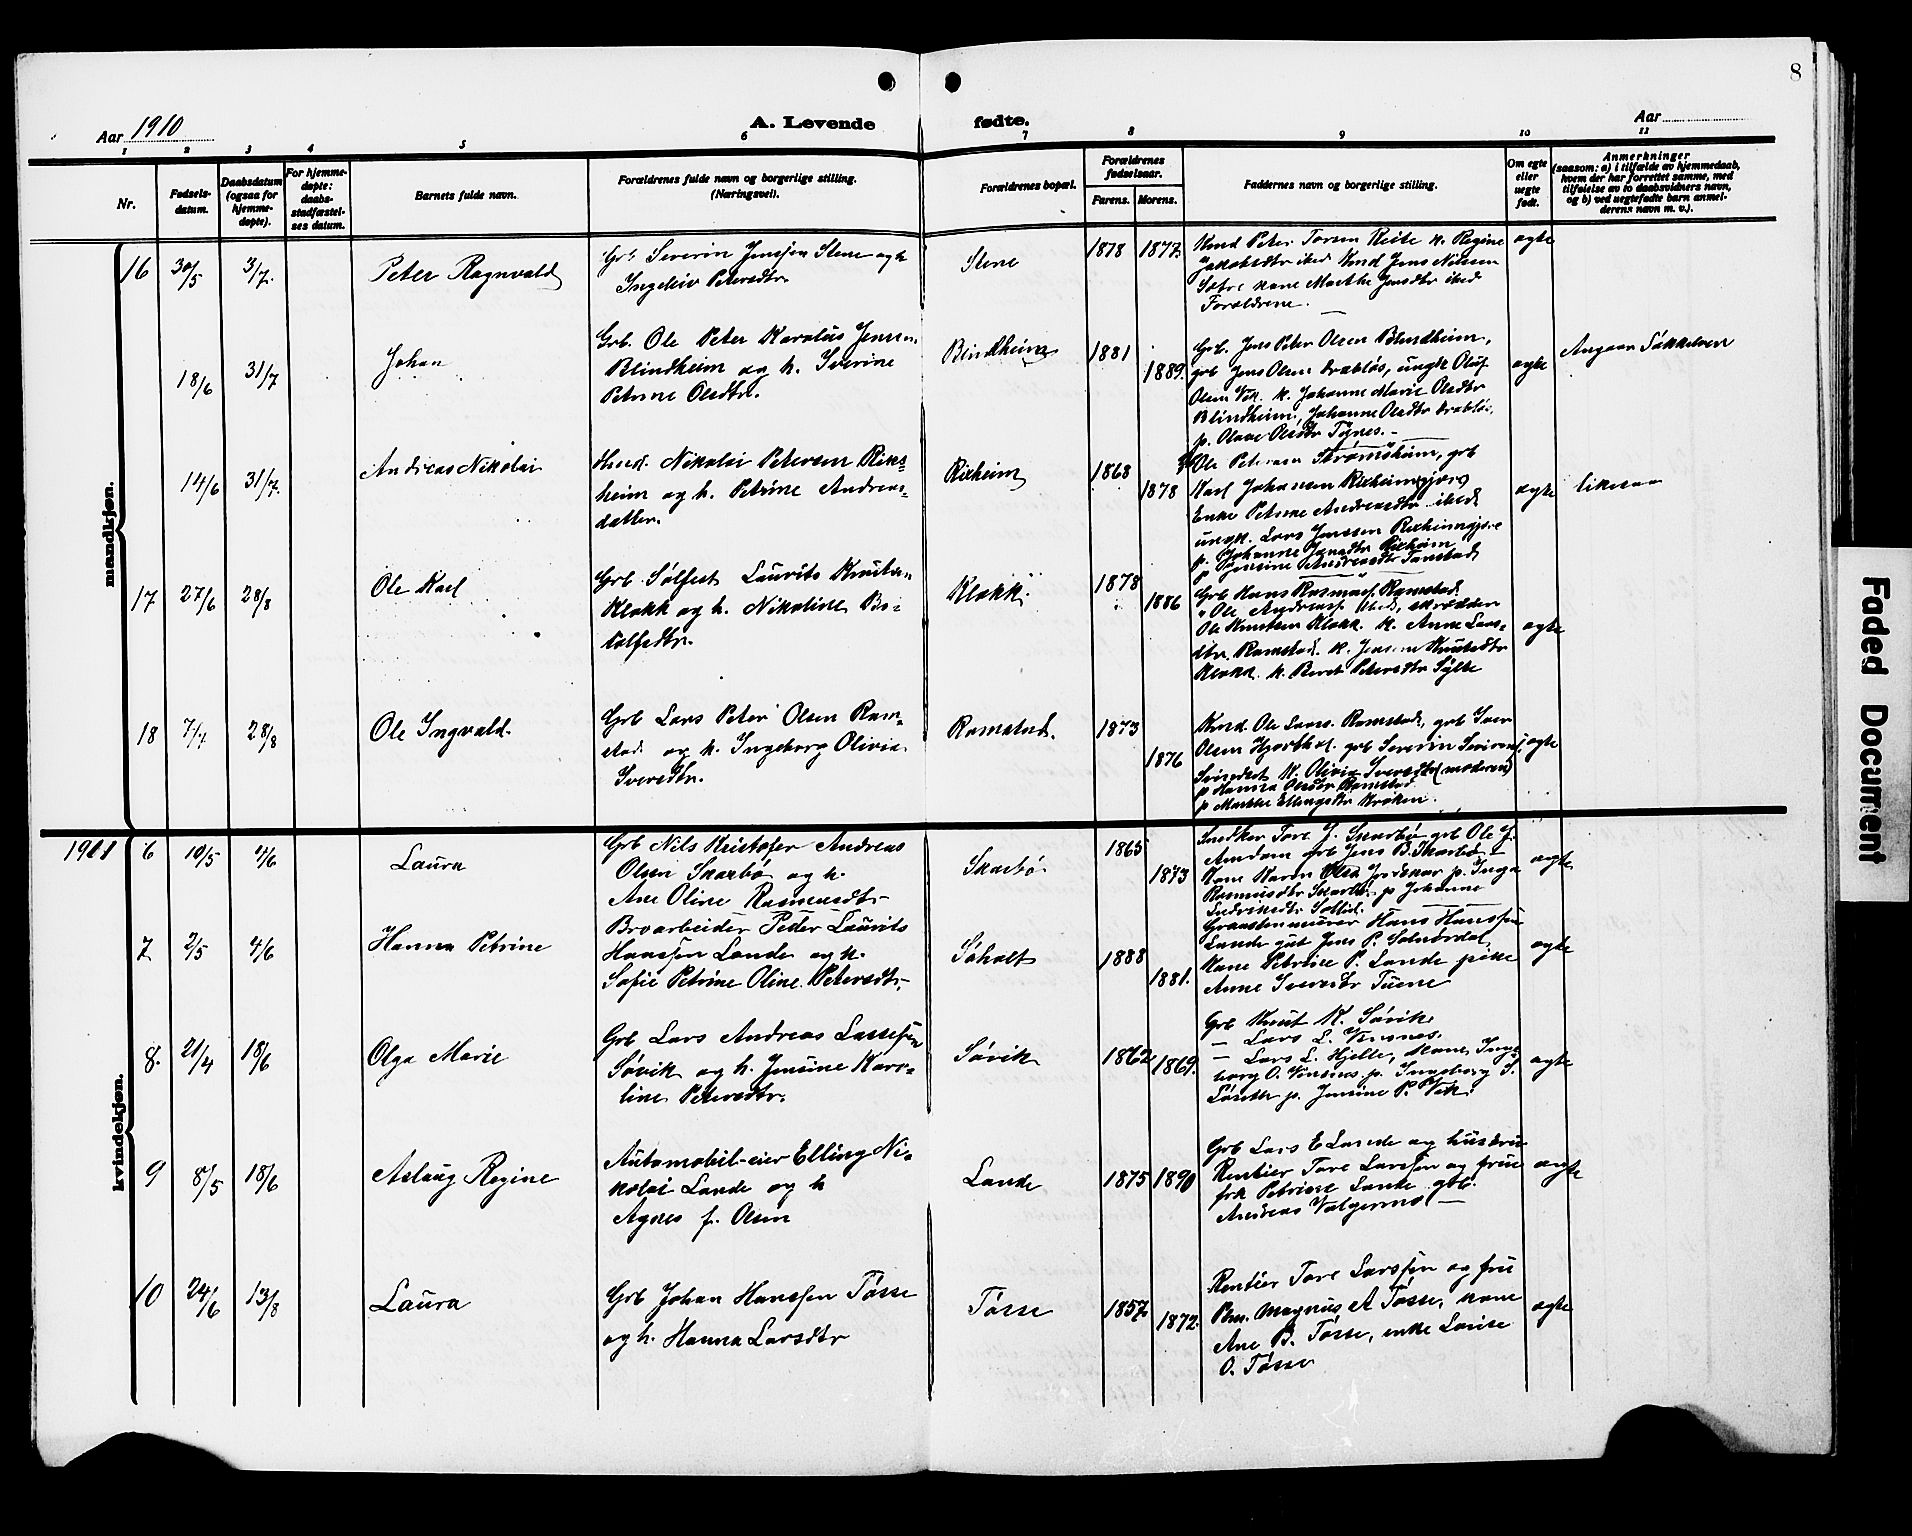 8
Aar 1910
A. Levende fødte.
Aar
1 2 3 4 5 6 7 8 9 10 11
Nr.
Fødsels-
datum.
Daabsdatum
(ogsaa for
hjemme-
døpte).
For hjemme-
døpte:
daabs-
stadfæstel-
ses datum.
Barnets fulde navn.
Forældrenes fulde navn og borgerlige stilling.
(Næringsvei).
Forældrenes bopæl.
Forældrenes
fødselsaar.
Farens. Morens.
Faddernes navn og borgerlige stilling.
Om egte
eller
uegte
født.
Anmerkninger
(saasom: a) i tilfælde av hjemmedaab,
hvem der har forrettet samme, med
tilføielse av to daabsvidners navn,
og b) ved uegtefødte barn anmel-
derens navn m. v.).
mandkjøn.
16 30/5 3/7. Peter Ragnvald
Grb Severin Jenssen Stene og h
Ingeleiv Petersdtr.
Stene 1878 1877.
Kmd Peter Toresen Reite k. Regine
Jakobsdtr ibed Kmd Jens Nilssen
Sætre kone Marthe Jensdtr ibed
Forældrene.
egte
18/6 31/7 Johan
Grb. Ole Peter Karolus Jensen
Blindheim og h. Iverine
Petrine Olsdtr.
Blindheim 1881 1889.
Grb. Jens Peter Olsen Blindheim,
grb Jens Olsen Drabløs, ungk Oluf
Olsen Vik. k. Johanne Marie Olsdtr
Blindheim, Johanne Olsdtr Drabløs,
p. Olave Olsdtr Tynes. -
egte
Angaar Søkkelven
14/6 31/7. Andreas Nikolai
Kmd. Nikolai Petersen Riks-
heim og h. Petrine Andreas-
datter.
Rixheim 1868 1878
Ole Petersen Strømsheim, grb
Karl Johansen Rixheimgjære
Enke Petrine Andreasdtr ibed
ungk. Lars Jenssen Rixheimgjære
p. Johanne Jensdtr Rixheim
p Jensine Andreasdtr Tanstad
egte
likesaa
17 27/6 28/8 Ole Karl
Grb Sølfest Laurits Knutsen
Klokk og h. Nikoline Bo-
tolfsdtr.
Klokk. 1878 1886
Grb Hans Rasmusf. Ramstad
" Ole Andreasf. ibed, skrædder
Ole Knutsen Klokk. k. Anne Lars-
dtr. Ramstad. k. Jensen Knutsdtr
Klokk. k. Beret Petersdtr Sylte
egte
18 7/7 28/8 Ole Ingvald.
Grb Lars Peter Olsen Ram-
stad og h. Ingeborg Olivia
Iversdtr.
Ramstad. 1873 1876
Kmd. Ole Larss. Ramstad, grb Iver
Olsen Hjorthol. grb Severin Severins,
k. Olivia Iversdtr (moderen)
p Hanna Olsdtr Ramstad
p Marthe Ellingsdtr Kroken.
egte
1911
kvindekjøn.
6 10/5 4/6 Laura
Grb Nils Kristofer Andreas
Olsen Skarbø og h.
Ane Oline Rasmusdtr-
Skarbø 1865 1873
Snedker Tore J. Skarbø grb Ole J.
Amdam grb Jens B. Skarbø -
Kone Karen Olsa p. Inga
Rasmusdtr Skarbø p Johanne
Indriksdtr Sollid.
egte
7 2/5 4/6 Hanna Petrine
Broarbeider Peder Laurits
Hanssen Lande og h.
Sofie Petrine Oline Petersdtr.
Søholt 1888 1881.
Graastensmurer Hans Hanssen
Lande grb Jens P. Solnørdal,
Kone Petrine P. Lande pike
Anne Iversdtr Tuene
egte
8. 21/4 18/6 Olga Marie
Grb Lars Andreas Lassesen
Søvik og h. Jensine Karo-
line Petersdtr.
Søvik 1862 1869.
Grb Knut K. Søvik
- Lars L. Vinsnes.
- Lars L. Hjelle, Kone Inge
borg O. Vinsnes. p. Ingeborg S.
p. Jensine P. Vik.
egte
9 8/5 18/6 Aslaug Regine
Automobil-eier Elling Ni-
kolai Lande og h
Agnes f. Olsen
Lande 1875 1890
Grb Lars E Lande og hustru
Rentier Tore Larssen og frue
frk Petrine Lande grb.
Andreas Valgermo -
egte
10 24/6 13/8 Laura
Grb Johan Hanssen Tøsse
og h. Hanna Larsdtr
Tøsse 1857. 1872.
Rentier Tore Larssen og fru
Phm. Magnus A Tøsse, kone
Ane B. Tøsse, enke Lovise
O. Tøsse
egte
Faded Document